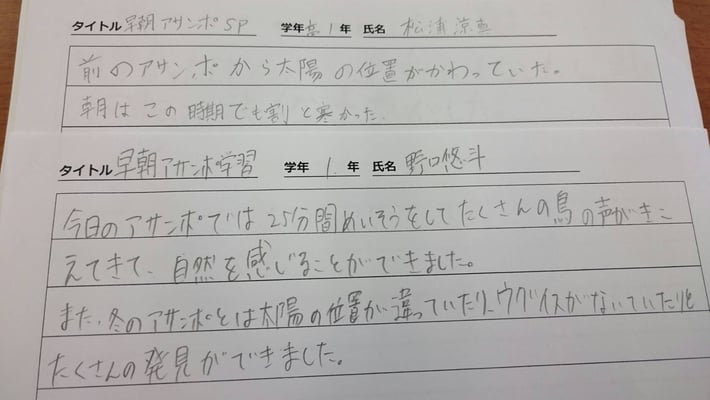 タイトル 早朝アサンポSP 学年 高1年 氏名 松浦涼亜
前のアサンポから太陽の位置がかわっていた。
朝はこの時期でも割と寒かった。
タイトル 早朝アサンポ学習 学年 1年 氏名 野口悠斗
今日のアサンポでは25分間めいそうをしてたくさんの鳥の声がきこ
えてきて、自然を感じることができました。
また、冬のアサンポとは太陽の位置が違っていたり、ウグイスがないていたりと
たくさんの発見ができました。